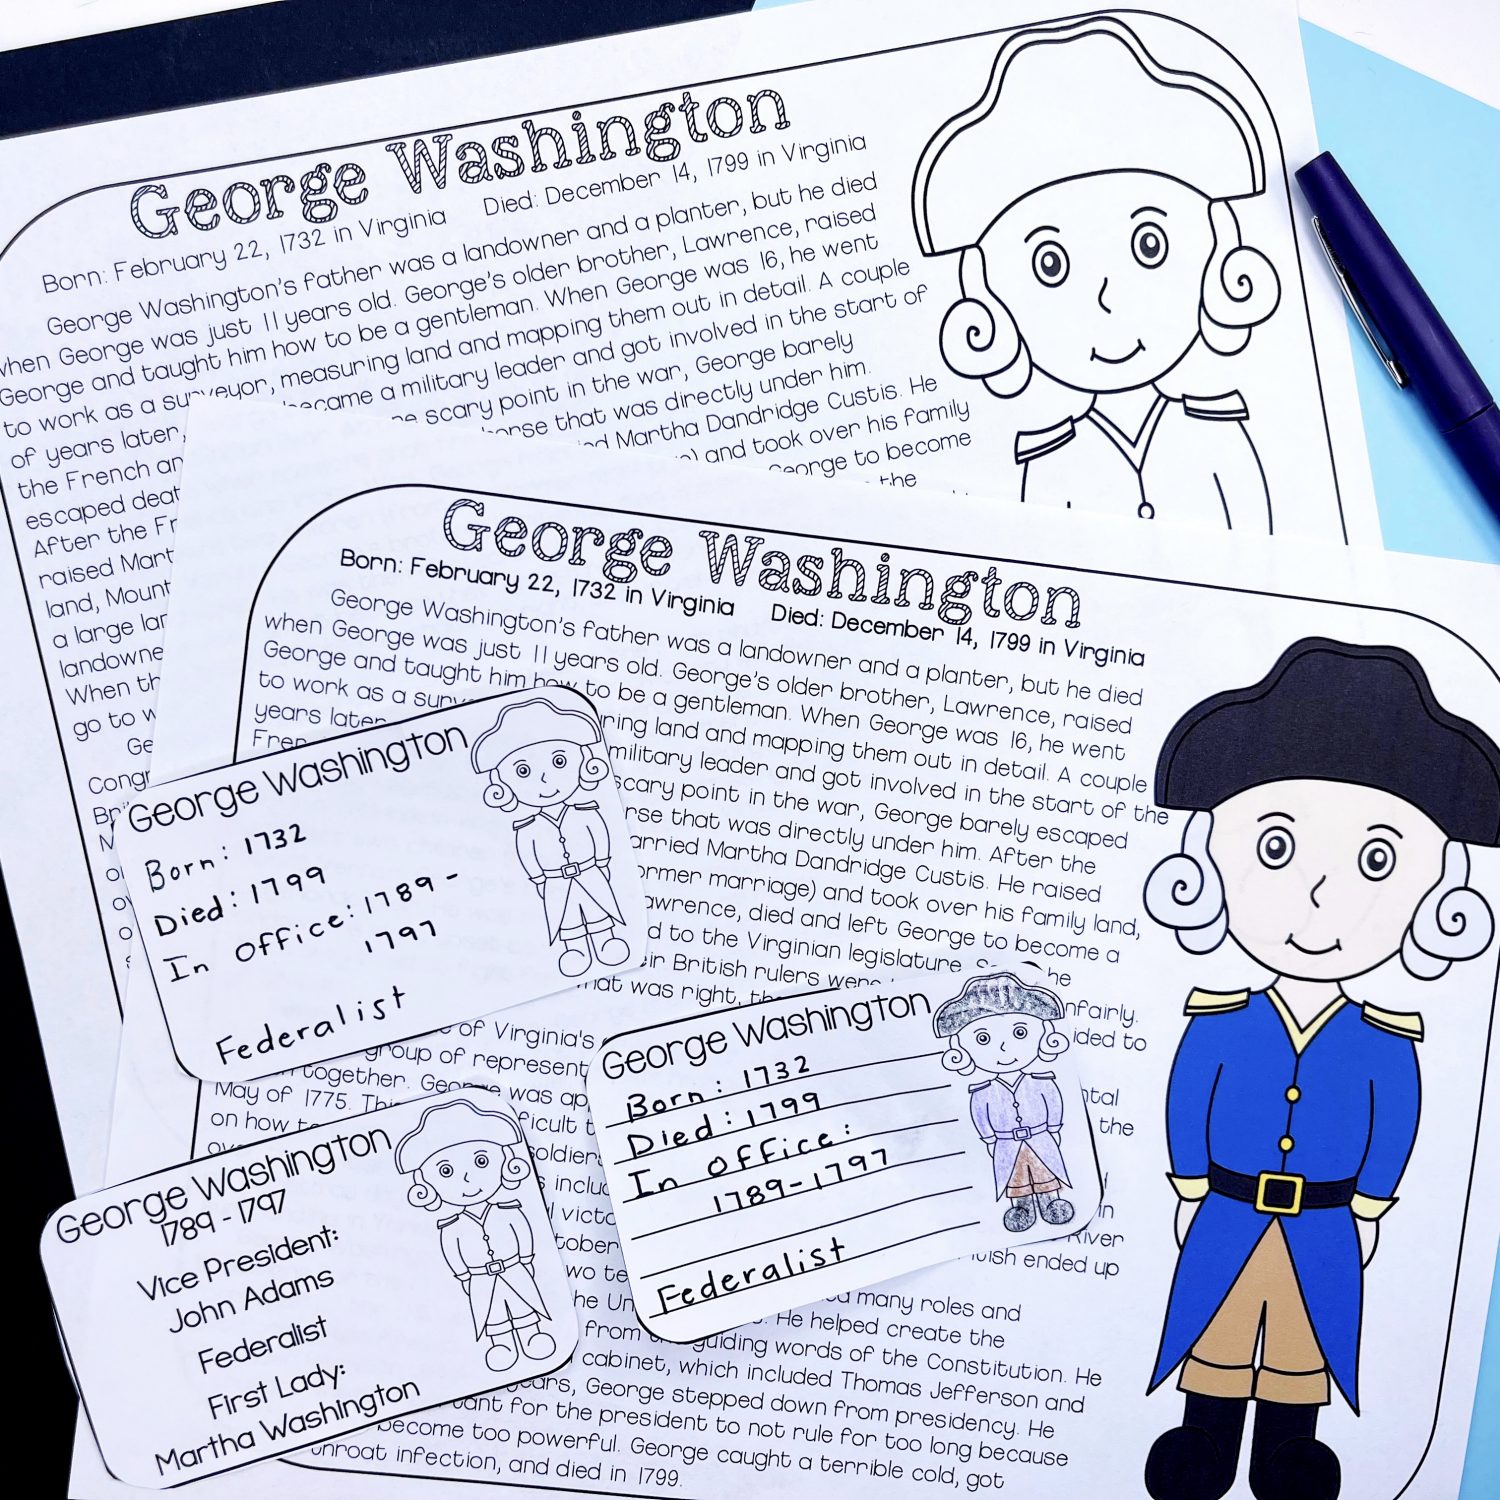 George Washington
Born: February 22, 1732 in Virginia Died: December 14, 1799 in Virginia
George Washington's father was a landowner and a planter, but he died
when George was just 11 years old. George's older brother, Lawrence, raised
George and taught him how to be a gentleman. When George was 16, he went
to work as a surveyor, measuring land and mapping them out in detail. A couple
of years later, became a military leader and got involved in the start of
the French an scary point in the war, George barely
escaped deat horse that was directly under him.
After the Fr Martha Dandridge Custis. He
raised Mart and took over his family
land, Mount George to become
a large lan the
landowne
When th
go to w
Ge
Congr
George Washington
Born: February 22, 1732 in Virginia Died: December 14, 1799 in Virginia
George Washington's father was a landowner and a planter, but he died
when George was just 11 years old. George's older brother, Lawrence, raised
George and taught him how to be a gentleman. When George was 16, he went
to work as a surv ring land and mapping them out in detail. A couple
years later military leader and got involved in the start of the
Fren scary point in the war, George barely escaped
rse that was directly under him. After the
arried Martha Dandridge Custis. He raised
ormer marriage) and took over his family land,
awrence, died and left George to become a
d to the Virginian legislature. he
eir British rulers were nfairly.
hat was right, ided to
of Virginia's
group of represent ntal
together. George was ap the
May of 1775. ficult
on how soldiers
inclu
l victo in
tober River
wo te uish ended up
he Un many roles and
He helped create the
from guiding words of the Constitution. He
cabinet, which included Thomas Jefferson and
ears, George stepped down from presidency. He
tant for the president to not rule for too long because
become too powerful. George caught a terrible cold, got
throat infection, and died in 1799.
George Washington
Born: 1732
Died: 1799
In Office: 1789 -
1797
Federalist
George Washington
Born: 1732
Died: 1799
In Office:
1789-1797
Federalist
George Washington
1789 - 1797
Vice President:
John Adams
Federalist
First Lady:
Martha Washington